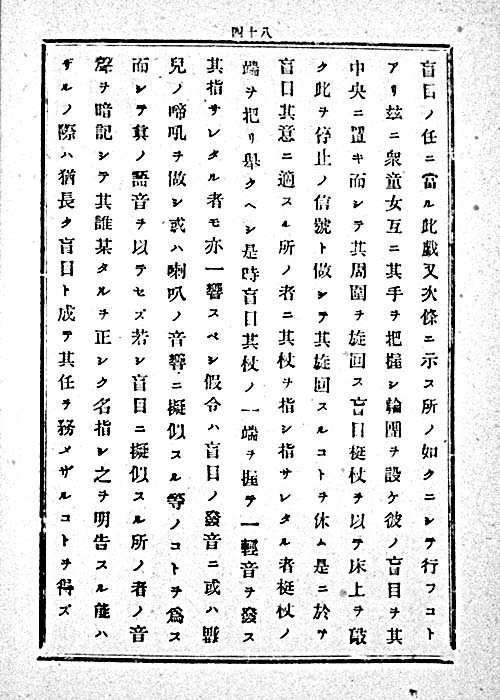 八十四
盲目ノ任ニ當ル此戯又次條ニ示ス所ノ如クニシテ行フコト
アリ玆ニ衆童女互ニ其手ヲ把握シ輪圍ヲ設ケ彼ノ盲目ヲ其
中央ニ置キ而シテ其周圍ヲ旋回ス盲目梃杖ヲ以テ床上ヲ敲
ク此ヲ停止ノ信號ト做シテ其旋回スルコトヲ休ム是ニ於テ
盲目其意ニ適スル所ノ者ニ其杖ヲ指シ指サレタル者梃杖ノ一
端ヲ把リ擧クヘシ是時盲目其杖ノ一端ヲ握テ一輕音ヲ發ス
其指サレタル者モ亦一響スベシ假令ハ盲目ノ發音ニ或ハ
兒ノ啼吼ヲ做シ或ハ喇叭ノ音響ニ擬似スル等ノコトヲ爲ス
而シテ眞ノ語音ヲ以テセズ若シ盲目ニ擬似スル所ノ者ノ音
聲ヲ暗記シテ其誰某タルヲ正シク名指シ之ヲ明告スル能ハ
ザルノ際ハ猶長ク盲目ト成テ其任ヲ務メザルコトヲ得ズ